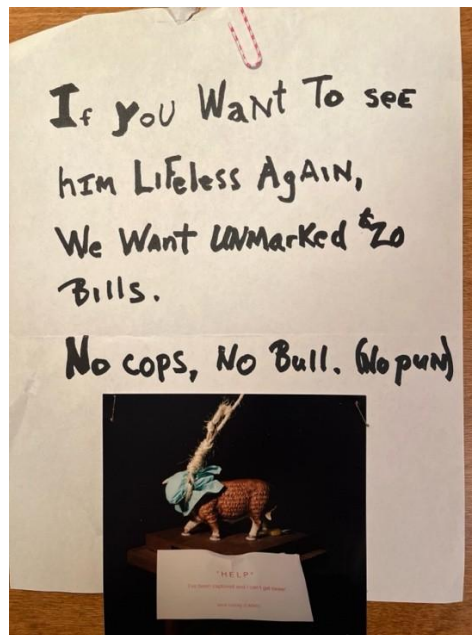 If you Want To see
him LiFeless AgAiN,
We Want UNMarked $20
Bills.
No cops, No Bull. (No pun)
"HELP"